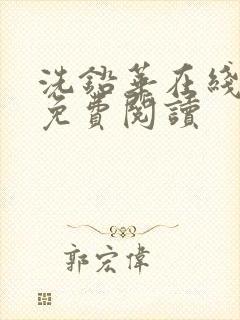 洗鉛華在綫
免費閱讀
郭宏偉